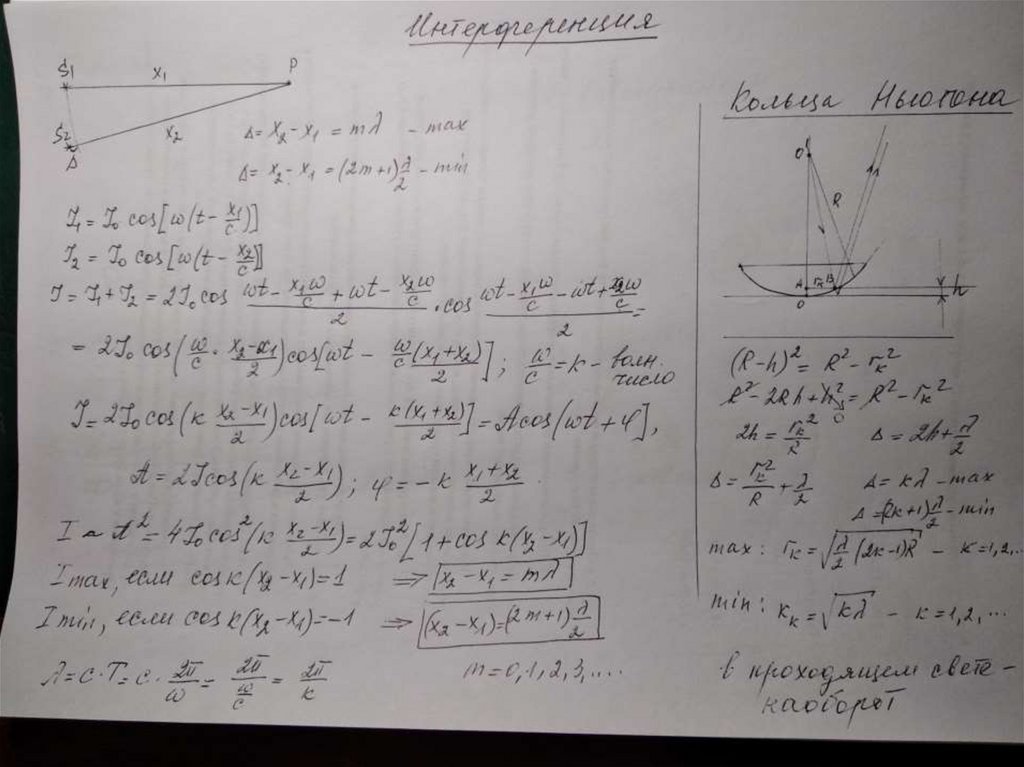 Интерференция
S1 x1 P
S2 x2
Δ
Δ = x2 - x1 = mλ - max
Δ = x2 - x1 = (2m+1) λ/2 - min
J1 = J0 cos[ω(t - x1/c)]
J2 = J0 cos[ω(t - x2/c)]
J = J1 + J2 = 2J0 cos (ωt - x1ω/c + ωt - x2ω/c)/2 · cos (ωt - x1ω/c - ωt + x2ω/c)/2 =
= 2J0 cos(ω/c · (x2 - x1)/2) cos[ωt - ω/c (x1+x2)/2]; ω/c = k - волн. число
J = 2J0 cos(k (x2 - x1)/2) cos[ωt - k(x1+x2)/2] = A cos(ωt + φ),
A = 2J cos(k (x2 - x1)/2); φ = -k (x1+x2)/2
I ~ A² = 4J0 cos²(k (x2 - x1)/2) = 2J0²[1 + cos k(x2 - x1)]
I max, если cos k(x2 - x1) = 1 ⇒ x2 - x1 = mλ
I min, если cos k(x2 - x1) = -1 ⇒ (x2 - x1) = (2m+1) λ/2
λ = c·T = c · 2π/ω = 2π/(ω/c) = 2π/k
m = 0,1,2,3,....
Кольца Ньютона
O'
R
A rк B
O
h
(R-h)² = R² - rк²
R² - 2Rh + h² = R² - rк²
0
2h = rк²/R Δ = 2h + λ/2
Δ = rк²/R + λ/2 Δ = kλ - max
Δ = (2k+1) λ/2 - min
max: rк = √(λ/2 (2k-1)R) - k = 1,2,...
min: kк = √(kλ) - k = 1,2,...
в проходящем свете -
наоборот